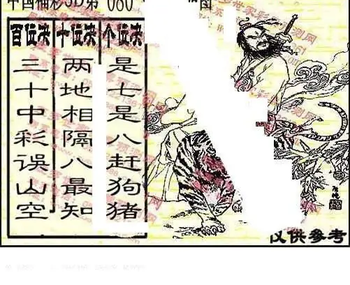 中国福彩3D第 080 图
百位决 十位决 个位决
三十中彩误山空
两地相隔八最知
是七是八赶狗猪
仅供参考